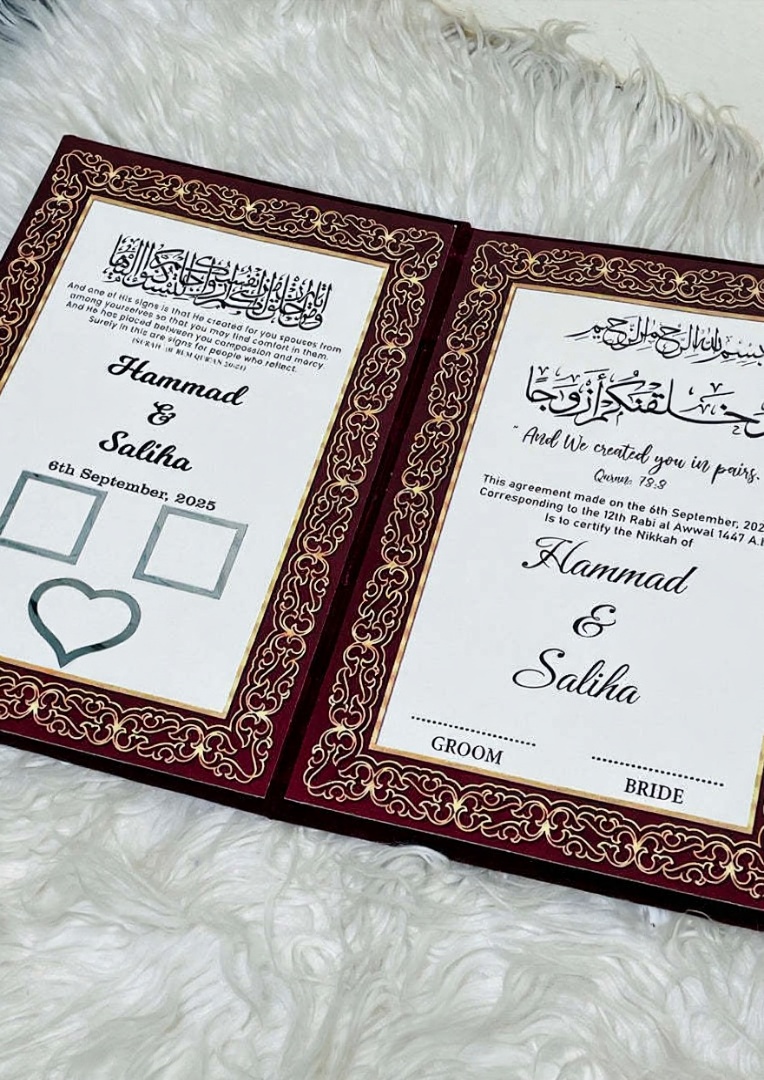 And one of His signs is that He created for you spouses from
among yourselves so that you may find comfort in them.
And He has placed between you compassion and mercy.
Surely in this are signs for people who reflect.
Hammad
&
Saliha
6th September, 2025
بِسْمِ اللهِ الرَّحْمٰنِ الرَّحِيْمِ
وَخَلَقْنٰكُمْ أَزْوَاجًا
" And We created you in pairs.
Quran: 78:8
This agreement made on the 6th September, 202
Corresponding to the 12th Rabi al Awwal 1447 A.H
Is to certify the Nikkah of
Hammad
&
Saliha
GROOM
BRIDE